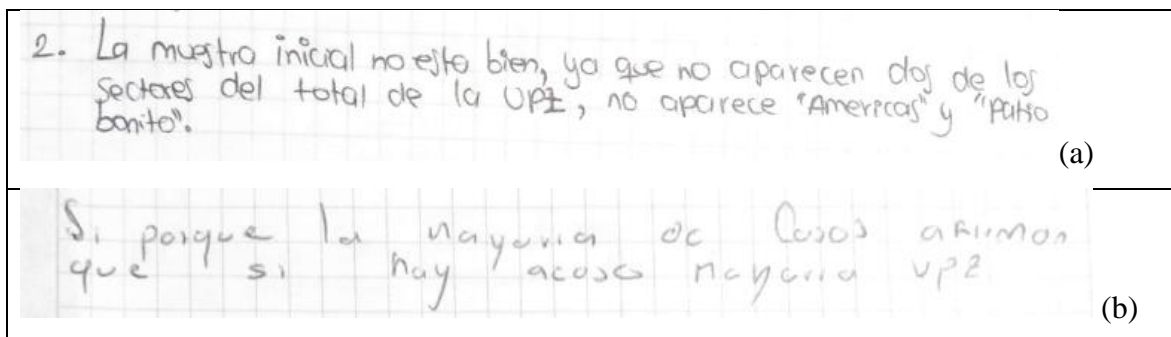 2. La muestra inicial no esta bien, ya que no aparecen dos de los
sectores del total de la UPZ, no aparece "Americas" y "Patio
bonito".
(a)
Si porque la mayoria de Casos afirman
que si hay acoso mayoria UPZ
(b)